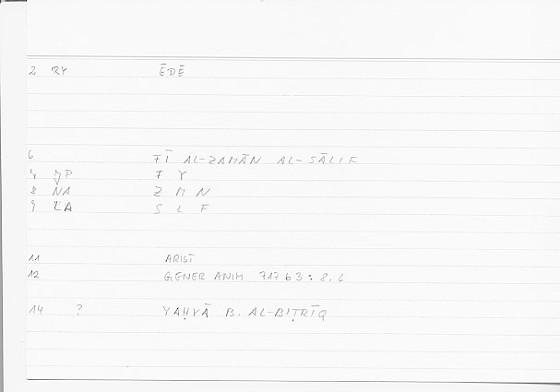 2 RY ĒDĒ
6 FĪ AL-ZAMĀN AL-SĀLIF
F Y
8 NA Z M N
9 S L F
11 ARIST
12 GENER ANIM 717 b3 : 8.6
14 ? YAḤYĀ B. AL-BIṬRĪQ